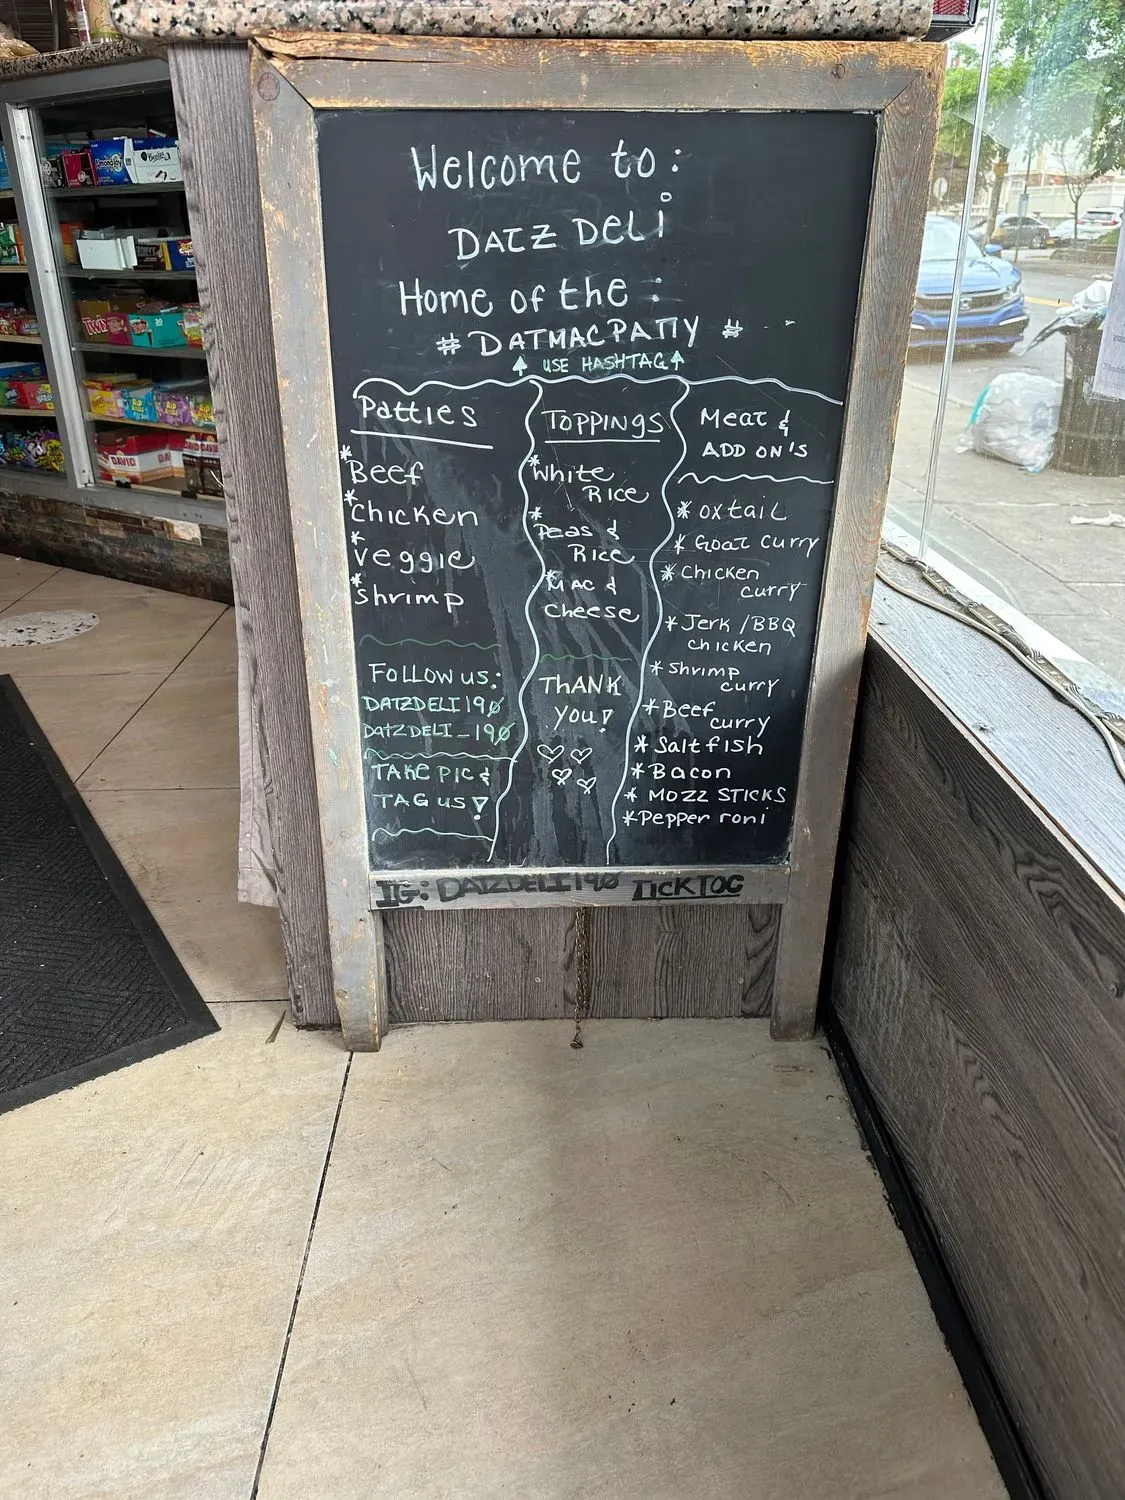 Welcome to:
DATZ DELi
Home of the :
# DATMACPATTY #
↑ USE HASHTAG ↑
Patties
* Beef
* Chicken
* Veggie
* Shrimp
FOLLOW US:
DATZDELI190
DATZDELI_190
TAKE PIC &
TAG US!
TOPPINGS
* White
Rice
* Peas &
Rice
* MAC &
Cheese
THANK
you!
Meat &
ADD ON'S
* Oxtail
* Goat curry
* Chicken
curry
* Jerk / BBQ
chicken
* Shrimp
curry
* Beef
curry
* Saltfish
* Bacon
* MOZZ STICKS
* Pepperroni
IG: DATZDELI190 TICKTOC
Almond Joy
TWIX
DAVID
DAVID